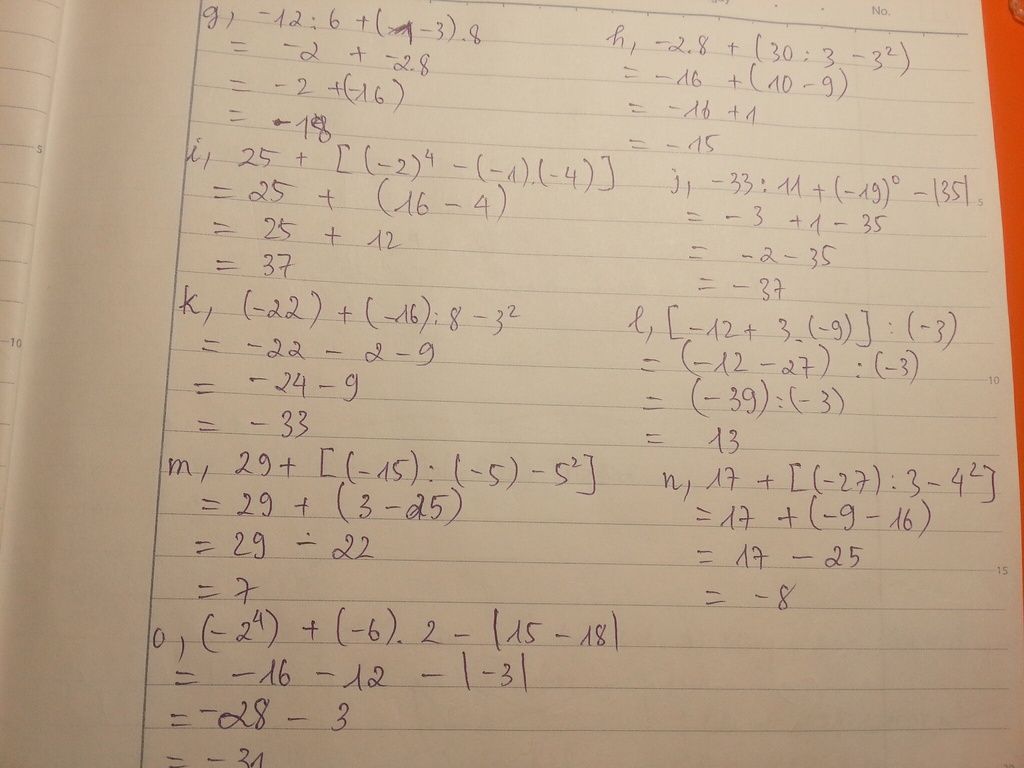 No.
g, -12 : 6 + (-1-3).8
= -2 + -2.8
= -2 +(-16)
= -18
h, -2.8 + (30 : 3 - 3²)
= -16 + (10 - 9)
= -16 +1
= -15
i, 25 + [(-2)⁴ - (-1).(-4)]
= 25 + (16 - 4)
= 25 + 12
= 37
j, -33 : 11 + (-19)⁰ - |35|
= -3 +1 - 35
= -2 - 35
= -37
k, (-22) + (-16) : 8 - 3²
= -22 - 2 - 9
= -24 - 9
= -33
l, [-12 + 3.(-9)] : (-3)
= (-12 - 27) : (-3)
= (-39) : (-3)
= 13
m, 29 + [(-15) : (-5) - 5²]
= 29 + (3 - 25)
= 29 - 22
= 7
n, 17 + [(-27) : 3 - 4²]
= 17 + (-9 - 16)
= 17 - 25
= -8
o, (-2⁴) + (-6). 2 - |15 - 18|
= -16 - 12 - |-3|
= -28 - 3
= -31
5
10
5
10
15